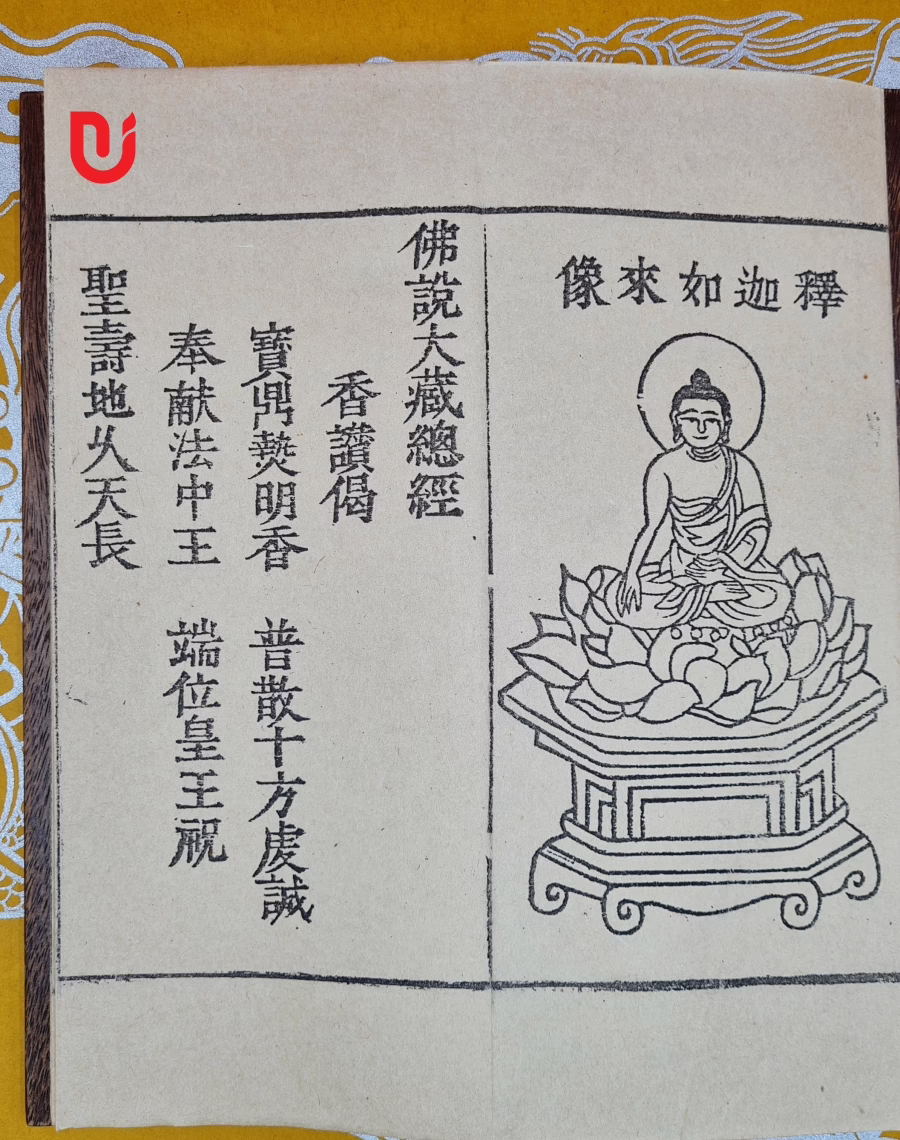 釋迦如來像
佛説大藏總經
香讃偈
寶鼎爇明香 普散十方虔誠
奉献法中王 端位皇王祝
聖壽地久天長